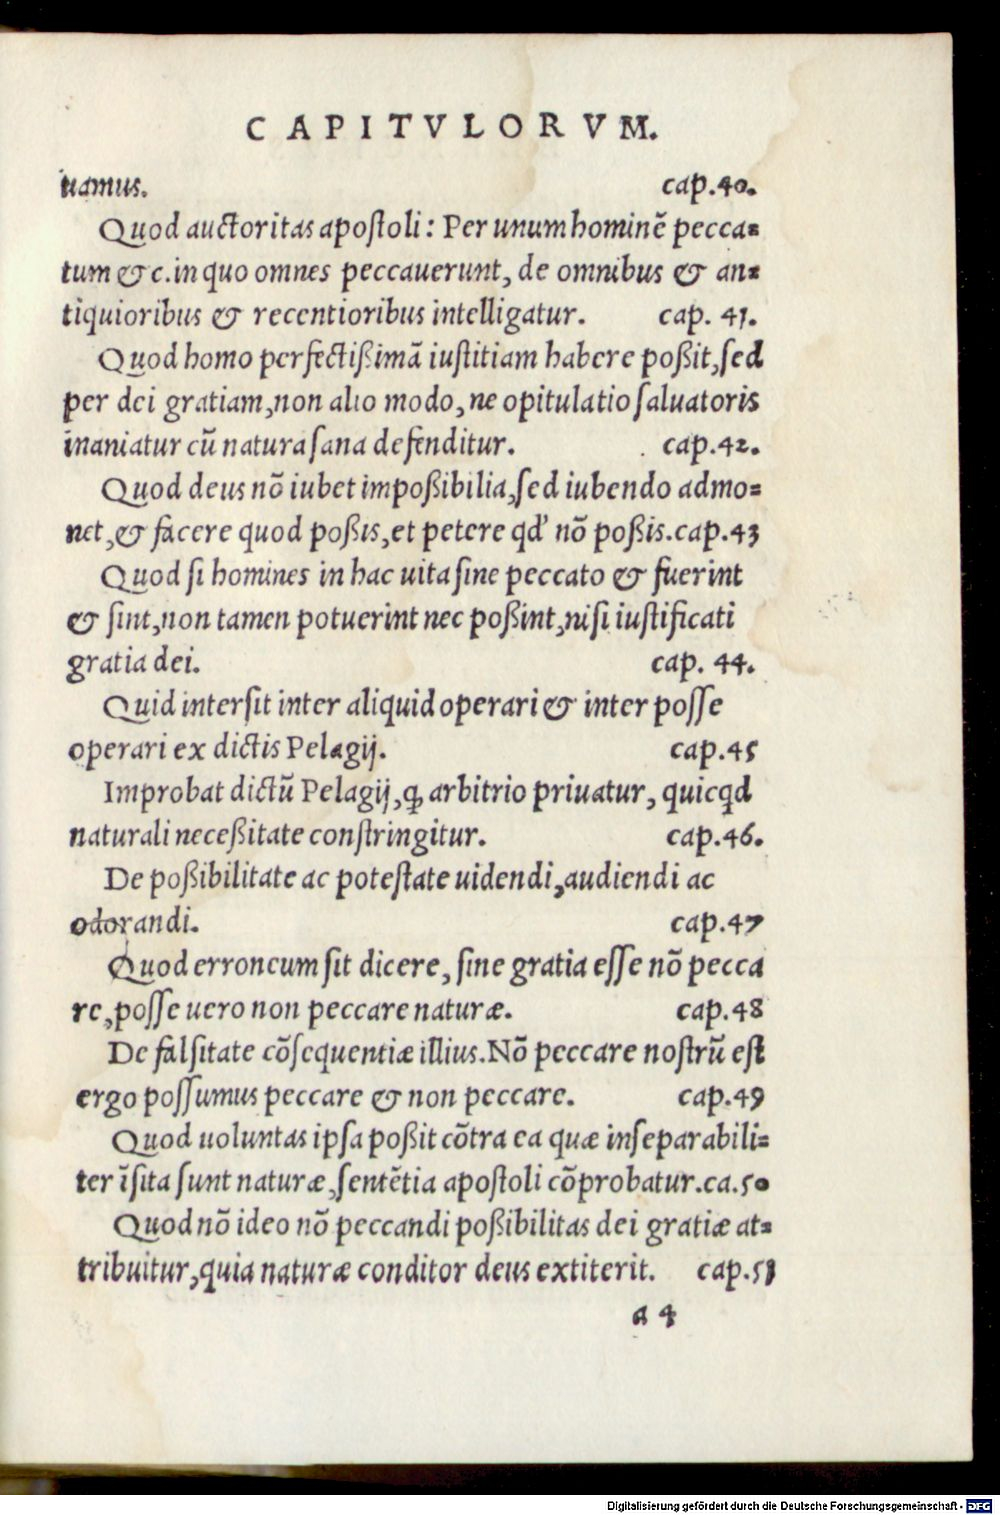 CAPITVLORVM.
uamus. cap.40.
Quod auctoritas apostoli: Per unum hominē pecca=
tum & c. in quo omnes peccauerunt, de omnibus & an=
tiquioribus & recentioribus intelligatur. cap. 41.
Quod homo perfectißimā iustitiam habere poßit, sed
per dei gratiam, non alio modo, ne opitulatio saluatoris
inaniatur cū natura sana defenditur. cap.42.
Quod deus nō iubet impoßibilia, sed iubendo admo=
net, & facere quod poßis, et petere qd' nō poßis. cap.43
Quod si homines in hac uita sine peccato & fuerint
& sint, non tamen potuerint nec poßint, nisi iustificati
gratia dei. cap. 44.
Quid intersit inter aliquid operari & inter posse
operari ex dictis Pelagij. cap.45
Improbat dictū Pelagij, ꝙ arbitrio priuatur, quicqd
naturali neceßitate constringitur. cap.46.
De poßibilitate ac potestate uidendi, audiendi ac
odorandi. cap.47
Quod erroneum sit dicere, sine gratia esse nō pecca
re, posse uero non peccare naturæ. cap.48
De falsitate cōsequentiæ illius. Nō peccare nostrū est
ergo possumus peccare & non peccare. cap.49
Quod uoluntas ipsa poßit cōtra ea quæ inseparabili=
ter īsita sunt naturæ, sentētia apostoli cōprobatur. ca.50
Quod nō ideo nō peccandi poßibilitas dei gratiæ at=
tribuitur, quia naturæ conditor deus extiterit. cap.51
a 4
Digitalisierung gefördert durch die Deutsche Forschungsgemeinschaft - DFG